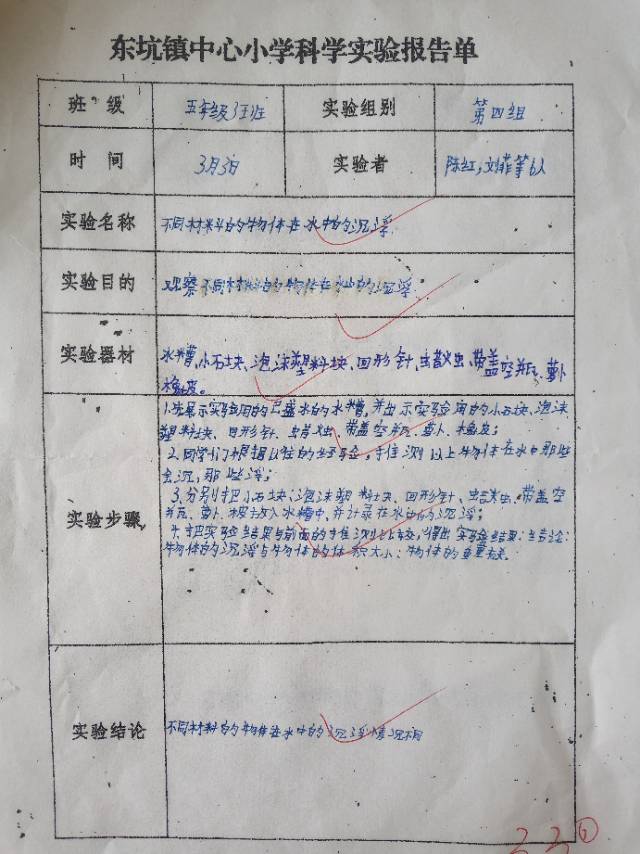 东坑镇中心小学科学实验报告单
班 级 五年级3班 实验组别 第四组
时 间 3月3日 实验者 陈红,刘菲等6人
实验名称 不同材料的物体在水中的沉浮
实验目的 观察不同材料的物体在水中的沉浮
实验器材 水槽,小石块、泡沫塑料块、回形针、带盖空瓶、萝卜
橡皮。
实验步骤
1.先展示实验用的已盛水的水槽,并出示实验用的小石块、泡沫
塑料块、回形针、带盖空瓶、萝卜、橡皮;
2.同学们根据以往的经验,推测以上物体在水中那些
会沉,那些浮;
3.分别把小石块、泡沫塑料块、回形针、带盖空
瓶、萝卜、橡皮放入水槽中,并记录在水中的沉浮;
4.把实验结果与前面的推测比较,得出实验结果:
物体的沉浮与物体的体积大小、物体的重量有关
实验结论 不同材料的物体在水中的沉浮情况不同